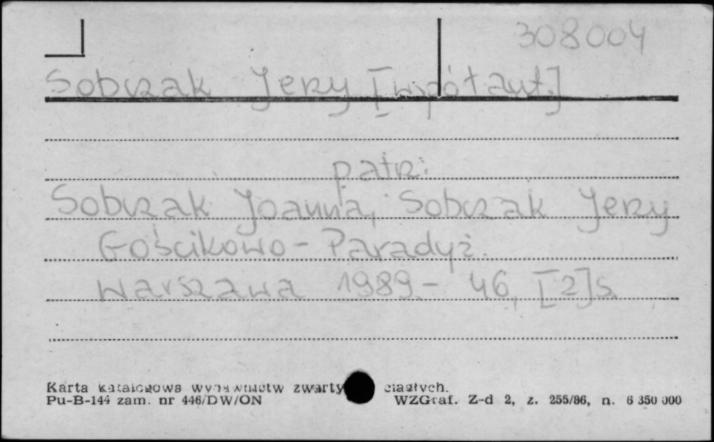 308004
Sobczak Jerzy [współaut.]
patrz:
Sobczak Joanna, Sobczak Jerzy
Gościkowo - Paradyż.
Warszawa 1989.- 46, [2]s.
Karta katalogowa wydawnictw zwarty ciągłych.
Pu-B-144 zam. nr 446/DW/ON WZGraf. Z-d 2, z. 255/86, n. 6 350 000